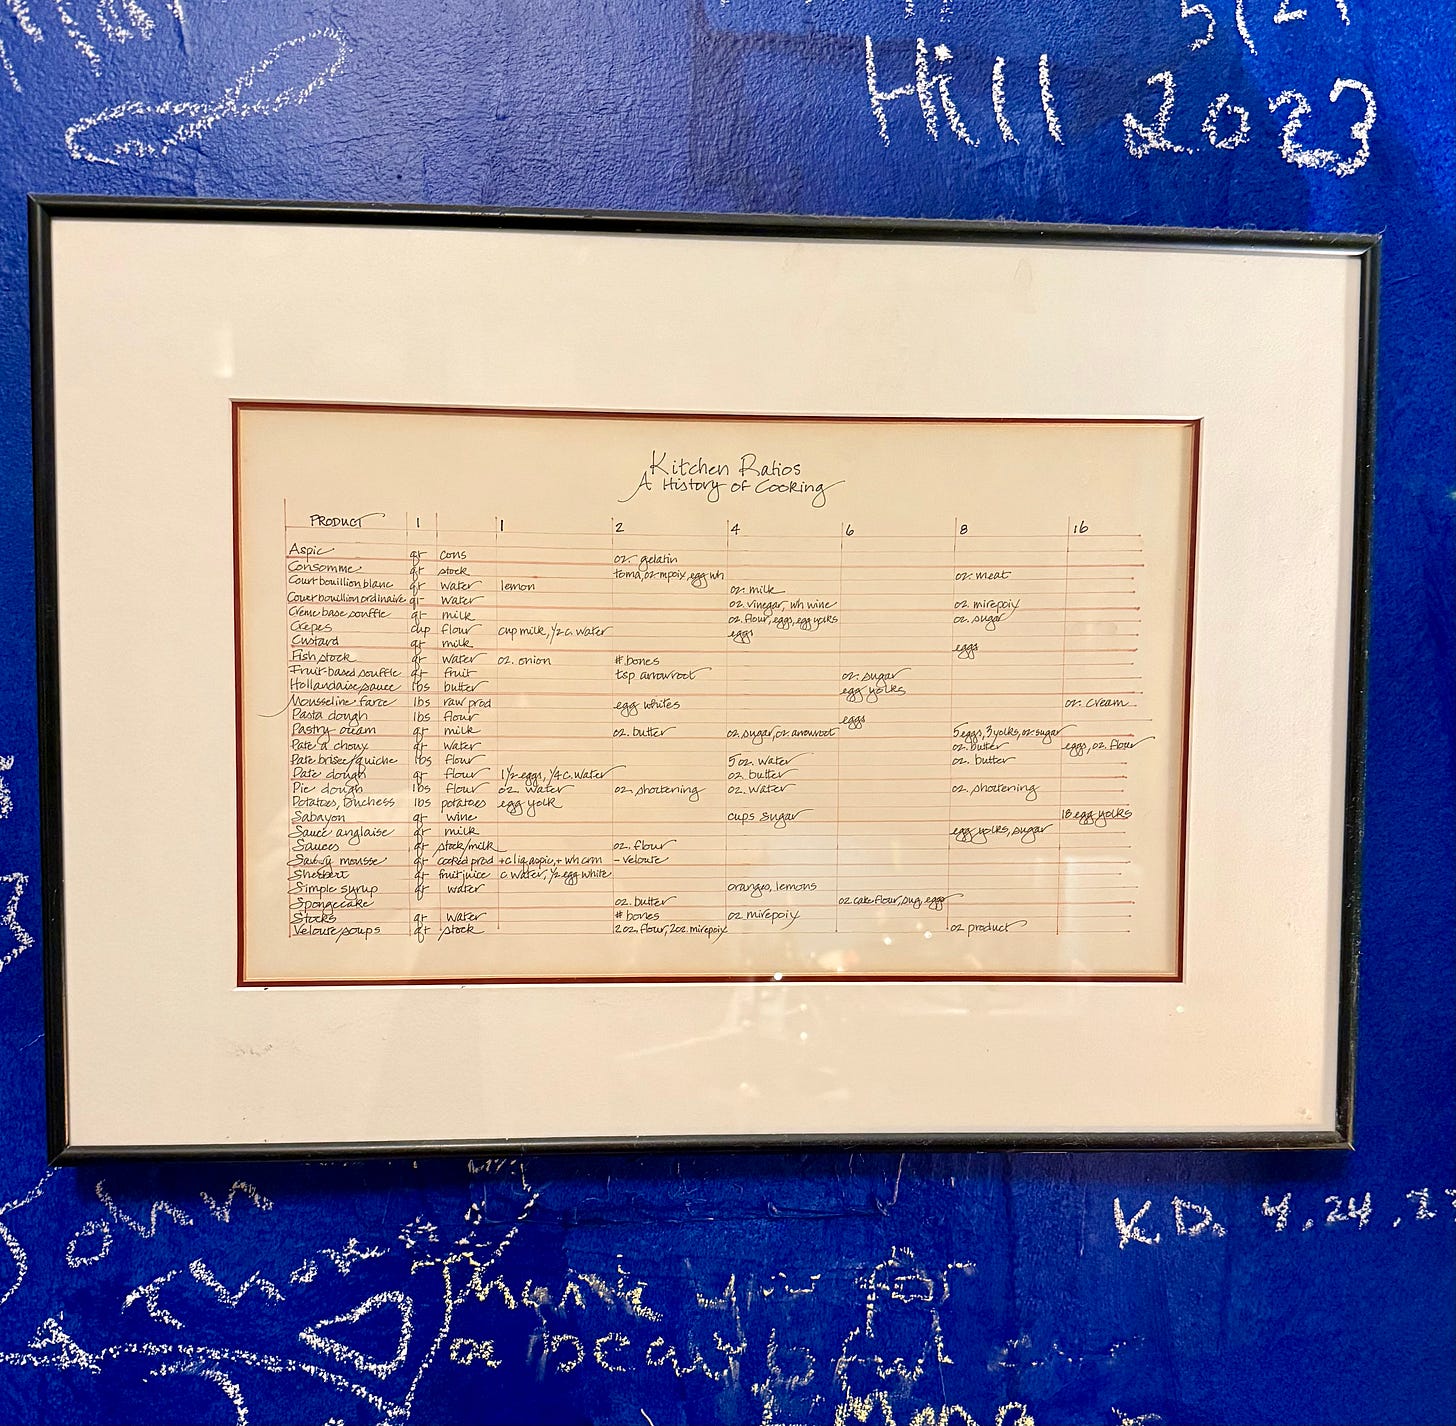 Hill 2023
Kitchen Ratios
A History of Cooking
PRODUCT 1 1 2 4 6 8 16
Aspic qt cons oz. gelatin
Consomme qt stock toma, oz mpoix, egg wh oz. meat
Court bouillion blanc qt water lemon oz. milk
Court bouillion ordinaire qt water oz. vinegar, wh wine oz. mirepoix
Creme base souffle qt milk oz. flour, eggs, egg yolks oz. sugar
Crepes cup flour cup milk, 1/2 c. water eggs
Custard qt milk eggs
Fish stock qt water oz. onion # bones
Fruit-based souffle qt fruit tsp arrowroot oz. sugar
Hollandaise sauce lbs butter egg yolks
Mousseline farce lbs raw prod egg whites oz. cream
Pasta dough lbs flour eggs
Pastry cream qt milk oz. butter oz. sugar, oz. arrowroot 5 eggs, 3 yolks, oz. sugar
Pate a choux qt water oz. butter eggs, oz. flour
Pate brisee/quiche lbs flour 5 oz. water oz. butter
Pate dough qt flour 1 1/2 eggs, 1/4 c. water oz. butter
Pie dough lbs flour oz. water oz. shortening oz. water oz. shortening
Potatoes, Duchess lbs potatoes egg yolk
Sabayon qt wine cups sugar 18 egg yolks
Sauce anglaise qt milk egg yolks, sugar
Sauces qt stock/milk oz. flour
Savory mousse qt cooked prod + c liq aspic, + wh crm - veloute
Sherbert qt fruit juice c water, 1/2 egg white
Simple syrup qt water oranges, lemons
Spongecake oz. butter oz cake flour, sug, eggs
Stocks qt water # bones oz. mirepoix
Veloute/soups qt stock 2 oz. flour, 2 oz. mirepoix oz product
John
K.D. 4.24.2
Thank you for
a beautiful